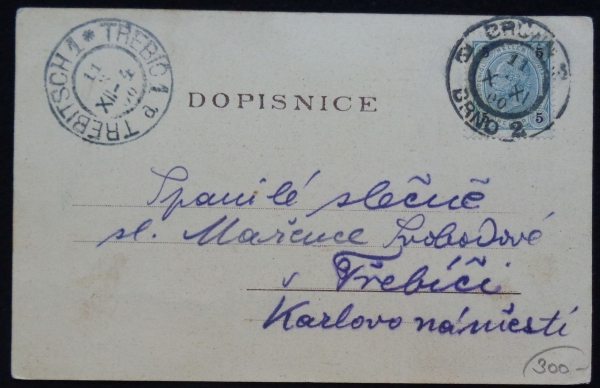 TREBITSCH 1 * TŘEBIČ 1
11
XII-4
DOPISNICE
BRÜNN 2
11
X XI
00
BRNO 2
5 5
5
Spanilé slečně
sl. Mařence Svobodové
v Třebíči
Karlovo náměstí
300-